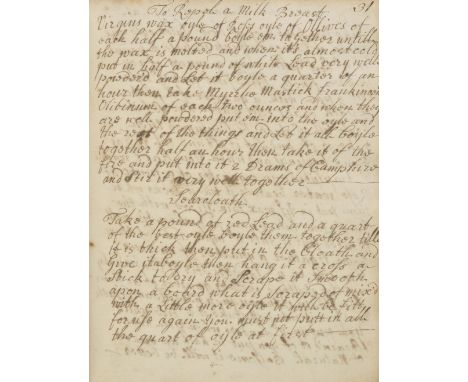 To Repele a Milk Breast 31
Virgins wax oyle of Roses oyle of olives of
each half a pound boyle em together untill
the wax is melted and when its almost cold
put in half a pound of white Lead very well
powderd and Let it boyle a quarter of an
hour then take Myrrhe Mastick Frankinsen
Olibinum of each two ounces and when they
are well powdered put em into the oyle and
the rest of the things and Let it all boyle
together half an hour then take it of the
fire and put into it 2 Drams of Camphire
and stir it very well together
Searcloath
Take a pound of red Lead and a quart
of the best oyle boyle them together till
it is thick then put in the Cloath and
give it a boyle then hang it cross a
stick to dry and scrape it smooth
upon a board what is scraped of mix'd
with a little more oyle it will be fitt
for use again you must not putt in all
the quart of oyle at first